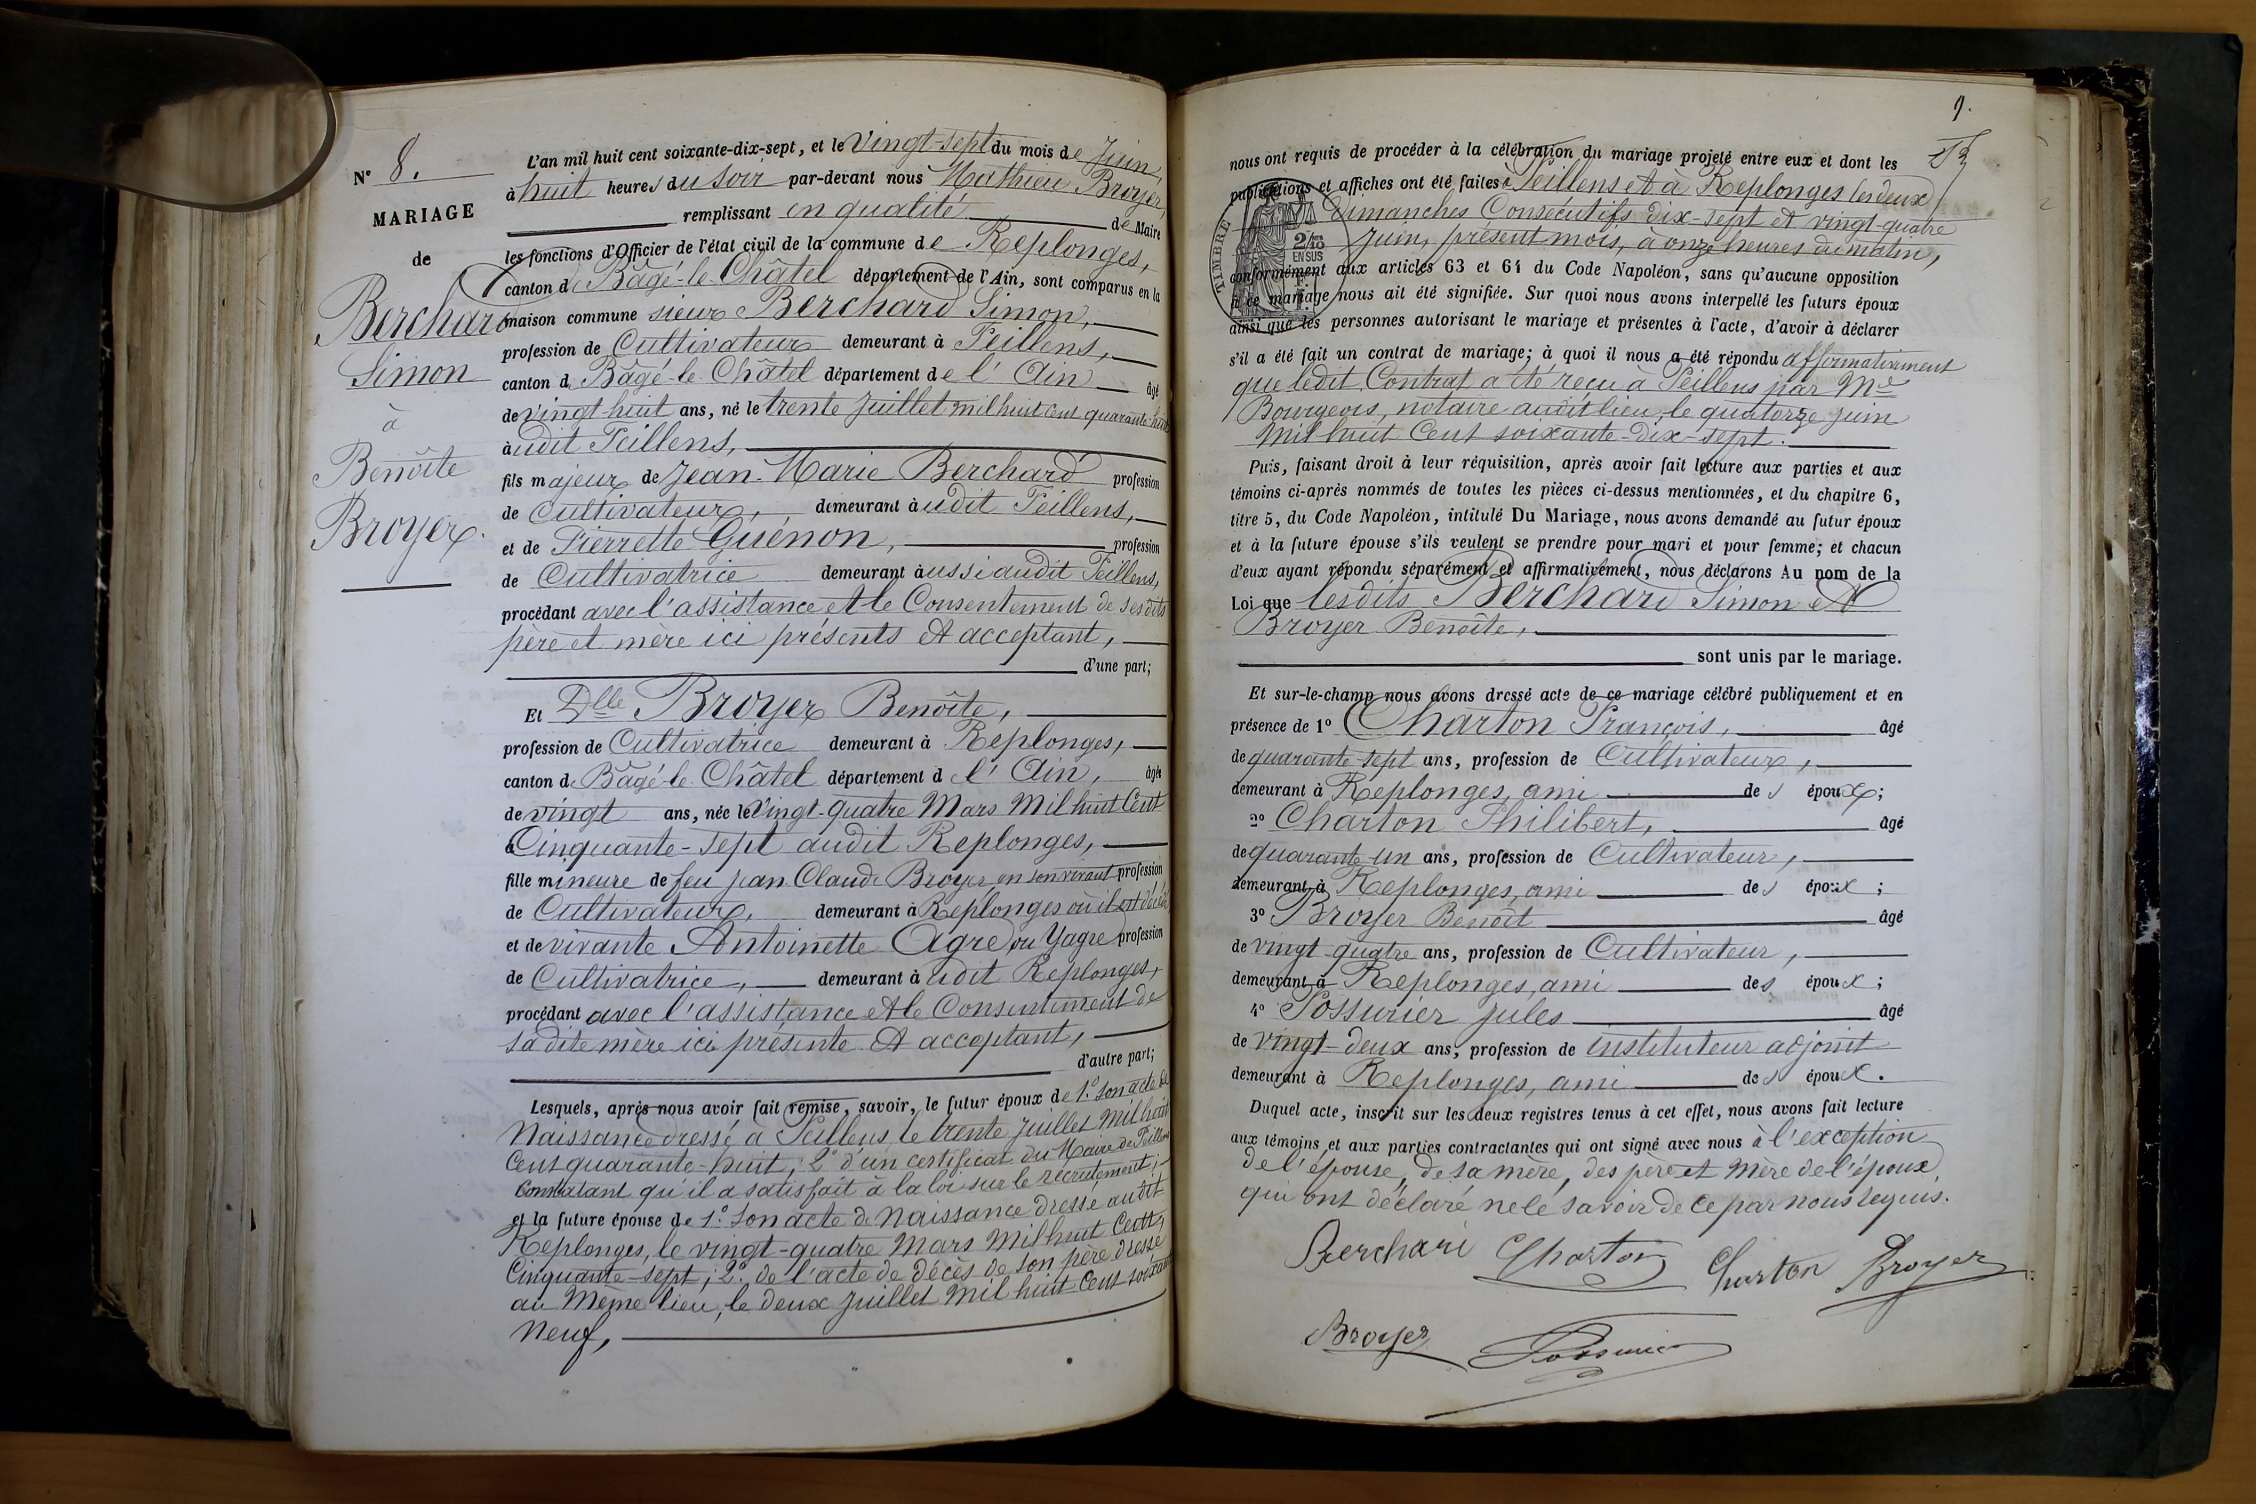 N° 8.
MARIAGE
de
Berchard
Simon
à
Benoîte
Broyer.
L'an mil huit cent soixante-dix-sept, et le Vingt-sept du mois de Juin,
à huit heures du soir par-devant nous Mathieu Broyer,
remplissant en qualité de Maire
les fonctions d'Officier de l'état civil de la commune de Replonges,
canton de Bâgé-le-Châtel département de l'Ain, sont comparus en la
maison commune sieur Berchard Simon,
profession de Cultivateur demeurant à Feillens,
canton d Bâgé-le-Châtel département de l'Ain âgé
de vingt-huit ans, né le trente Juillet mil huit cent quarante-huit
audit Feillens,
fils majeur de Jean-Marie Berchard profession
de Cultivateur, demeurant audit Feillens,
et de Pierrette Guénon, profession
de Cultivatrice demeurant aussi audit Feillens,
procédant avec l'assistance et le Consentement de ses dits
père et mère ici présents et acceptant,
d'une part;
Et Dlle Broyer Benoîte,
profession de Cultivatrice demeurant à Replonges,
canton d Bâgé-le-Châtel département d l'Ain, âgée
de vingt ans, née le Vingt-quatre Mars Mil huit Cent
Cinquante-sept audit Replonges,
fille mineure de feu Jean Claude Broyer en son vivant profession
de Cultivateur, demeurant à Replonges où il est décédé
et de vivante Antoinette Agre ou Yagre profession
de Cultivatrice, demeurant audit Replonges,
procédant avec l'assistance et le Consentement de
sa dite mère ici présente et acceptant,
d'autre part;
Lesquels, après nous avoir fait remise, savoir, le futur époux de 1° son acte de
Naissance dressé à Feillens, le trente Juillet Mil huit
Cent quarante-huit; 2° d'un certificat du Maire de Feillens
Constatant qu'il a satisfait à la loi sur le recrutement;
et la future épouse de 1° Son acte de Naissance dressé audit
Replonges, le vingt-quatre Mars Mil huit Cent
Cinquante-sept; 2° de l'acte de décès de son père dressé
au Même lieu, le deux Juillet Mil huit Cent soixante
Neuf,
9.
nous ont requis de procéder à la célébration du mariage projeté entre eux et dont les
publications et affiches ont été faites à Feillens et à Replonges les deux
Dimanches Consécutifs dix-sept et vingt-quatre
Juin, présent mois, à onze heures du matin,
TIMBRE
2/10
EN SUS
conformément aux articles 63 et 64 du Code Napoléon, sans qu'aucune opposition
à ce mariage nous ait été signifiée. Sur quoi nous avons interpellé les futurs époux
ainsi que les personnes autorisant le mariage et présentes à l'acte, d'avoir à déclarer
s'il a été fait un contrat de mariage; à quoi il nous a été répondu affirmativement
que ledit Contrat a été reçu à Feillens par Me
Bourgeois, notaire audit lieu, le quatorze juin
Mil huit Cent soixante-dix-sept.
Puis, faisant droit à leur réquisition, après avoir fait lecture aux parties et aux
témoins ci-après nommés de toutes les pièces ci-dessus mentionnées, et du chapitre 6,
titre 5, du Code Napoléon, intitulé Du Mariage, nous avons demandé au futur époux
et à la future épouse s'ils veulent se prendre pour mari et pour femme; et chacun
d'eux ayant répondu séparément et affirmativement, nous déclarons Au nom de la
Loi que lesdits Berchard Simon et
Broyer Benoîte,
sont unis par le mariage.
Et sur-le-champ nous avons dressé acte de ce mariage célébré publiquement et en
présence de 1° Charton François, âgé
de quarante-sept ans, profession de Cultivateur,
demeurant à Replonges, ami des époux;
2° Charton Philibert, âgé
de quarante-un ans, profession de Cultivateur,
demeurant à Replonges, ami des époux;
3° Broyer Benoît âgé
de vingt-quatre ans, profession de Cultivateur,
demeurant à Replonges, ami des époux;
4° Possurier Jules âgé
de vingt-deux ans, profession de instituteur adjoint
demeurant à Replonges, ami des époux.
Duquel acte, inscrit sur les deux registres tenus à cet effet, nous avons fait lecture
aux témoins et aux parties contractantes qui ont signé avec nous à l'exception
de l'épouse, de sa mère, des père et Mère de l'époux,
qui ont déclaré ne le savoir de ce par nous requis.
Berchard Charton Charton Broyer
Broyer Possurier